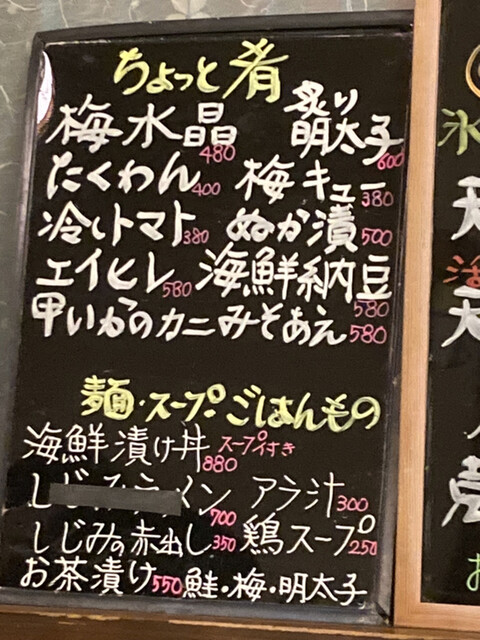 ちょっと肴
梅水晶 480 炙り明太子 600
たくわん 400 梅キュー 380
冷しトマト 380 ぬか漬 500
エイヒレ 580 海鮮納豆 580
甲いかのカニみそあえ 580
麺・スープ・ごはんもの
海鮮漬け丼 スープ付き 880
しじみラーメン 700 アラ汁 300
しじみの赤出し 350 鶏スープ 250
お茶漬け 550 鮭・梅・明太子
氷